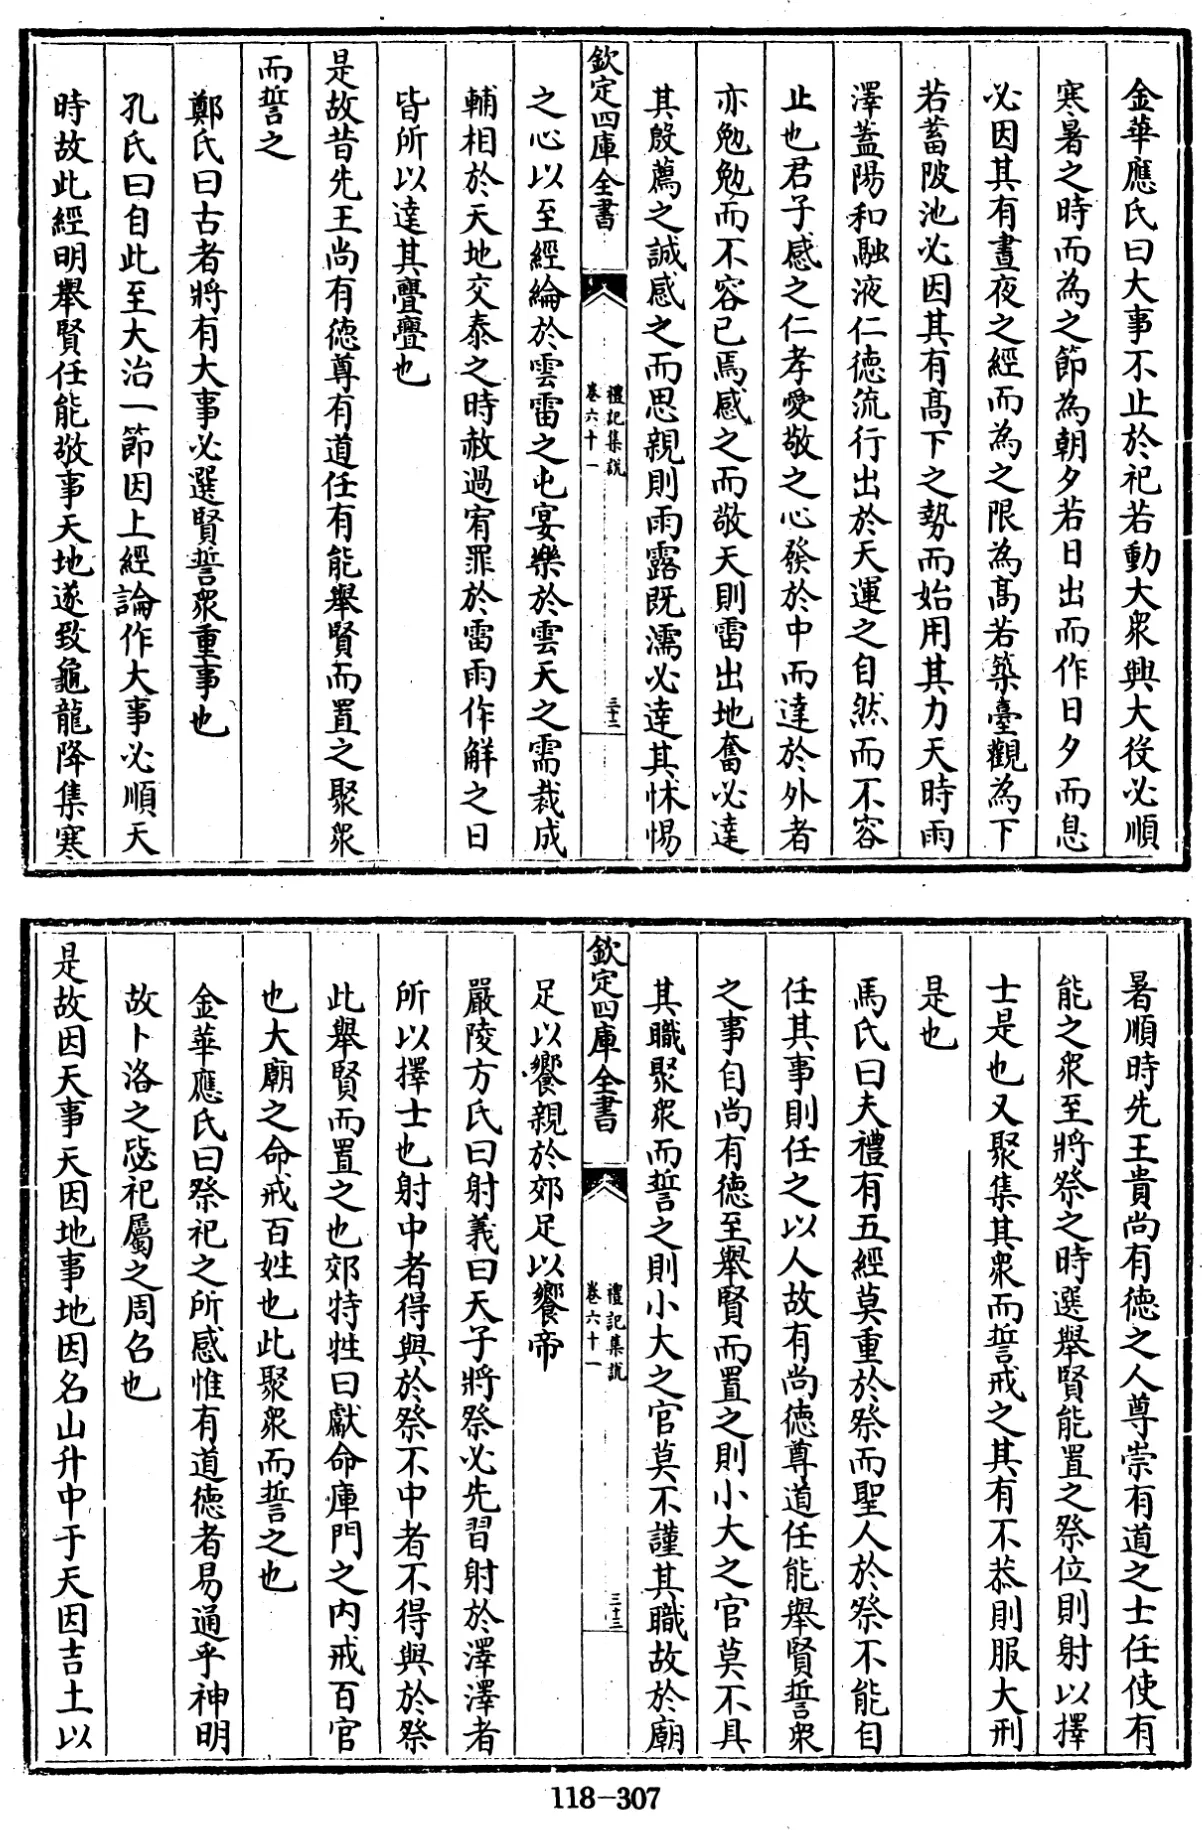 金華應氏曰大事不止於祀若動大衆興大役必順
寒暑之時而為之節為朝夕若日出而作日夕而息
必因其有晝夜之經而為之限為髙若築臺觀為下
若蓄陂池必因其有髙下之勢而始用其力天時雨
澤蓋陽和融液仁德流行出於天運之自然而不容
止也君子感之仁孝愛敬之心發於中而達於外者
亦勉勉而不容已焉感之而敬天則雷出地奮必達
其殷薦之誠感之而思親則雨露既濡必達其怵惕
欽定四庫全書
禮記集説
卷六十一
三十二
之心以至經綸於雲雷之屯宴樂於雲天之需裁成
輔相於天地交泰之時赦過宥罪於雷雨作解之日
皆所以達其亹亹也
是故昔先王尚有德尊有道任有能舉賢而置之聚衆
而誓之
鄭氏曰古者將有大事必選賢誓衆重事也
孔氏曰自此至大治一節因上經論作大事必順天
時故此經明舉賢任能敬事天地遂致龜龍降集寒
暑順時先王貴尚有德之人尊崇有道之士任使有
能之衆至將祭之時選舉賢能置之祭位則射以擇
士是也又聚集其衆而誓戒之其有不恭則服大刑
是也
馬氏曰夫禮有五經莫重於祭而聖人於祭不能自
任其事則任之以人故有尚德尊道任能舉賢誓衆
之事自尚有德至舉賢而置之則小大之官莫不具
其職聚衆而誓之則小大之官莫不謹其職故於廟
欽定四庫全書
禮記集説
卷六十一
三十三
足以饗親於郊足以饗帝
嚴陵方氏曰射義曰天子將祭必先習射於澤澤者
所以擇士也射中者得與於祭不中者不得與於祭
此舉賢而置之也郊特牲曰獻命庫門之内戒百官
也大廟之命戒百姓也此聚衆而誓之也
金華應氏曰祭祀之所感惟有道德者易通乎神明
故卜洛之毖祀屬之周召也
是故因天事天因地事地因名山升中于天因吉土以
118-307